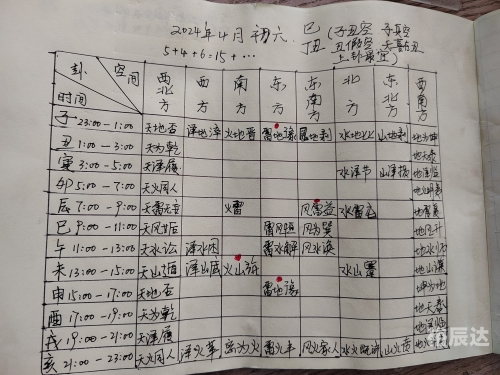 2024年4月初六 巳 (子丑空 子真空
5+4+6=15+… 丁丑 丑假空
卦 空间 时间 西北方 西方 南方 东方 东南方 北方 东北方 西南方
子 23:00-1:00 天地否 泽地萃 火地晋 雷地豫 水地比 山地剥
丑 1:00-3:00 天为乾 地天泰
寅 3:00-5:00 天泽履 水泽节 山泽损
卯 5:00-7:00 天火同人
辰 7:00-9:00 天雷无妄 火雷 风雷益 水雷屯
巳 9:00-11:00 天风姤 雷风恒 地风升
午 11:00-13:00 天水讼 泽水困 雷水解 风水涣 地水师
未 13:00-15:00 天山遁 泽山咸 火山旅 水山蹇 地山谦
申 15:00-17:00 天地否 雷地豫
酉 17:00-19:00 天为乾 地天泰
戌 19:00-21:00 天泽履
亥 21:00-23:00 天火同人 泽火革 离为火 雷火丰 风火家人 水火既济 山火贲